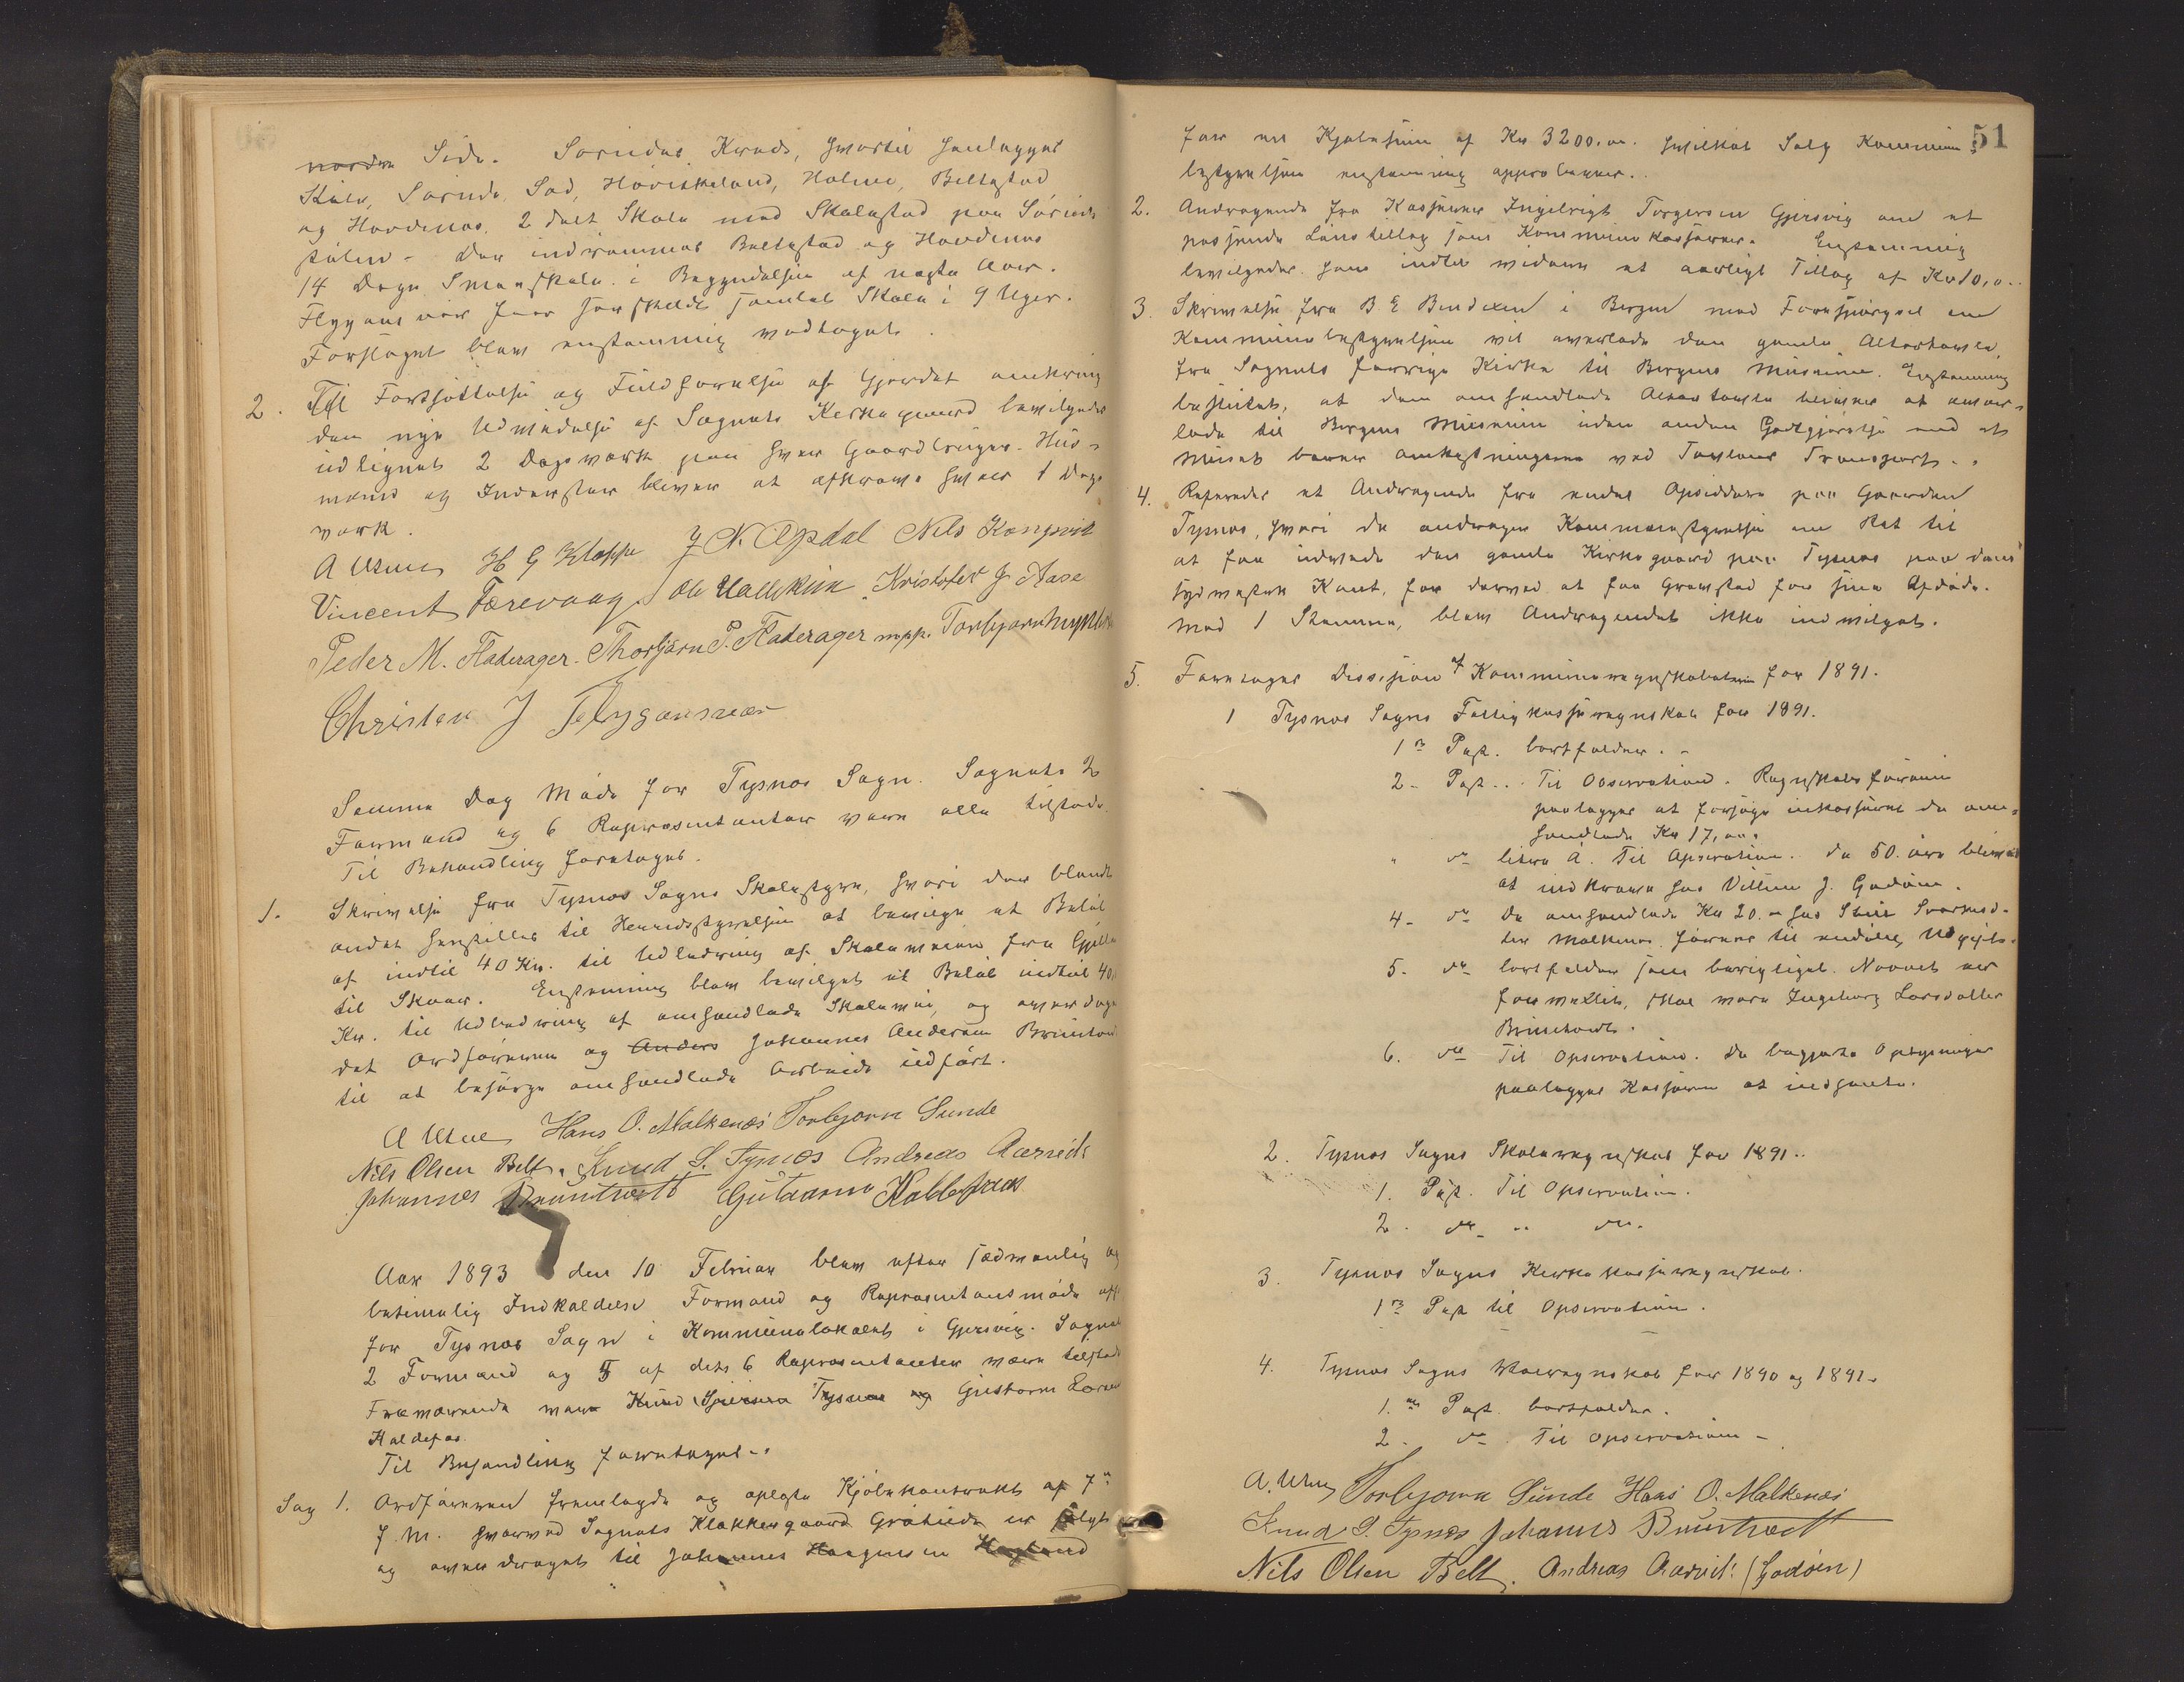 norden Side. Søreidets Kreds, hvortil henlægges
Kaldø, Søreide, Sad, Høviskeland, Holme, Beltestad
og Hovdenæs. 2 delt Skole med Skolested paa Søreids
stølen. Der indrømmes Beltestad og Hovdenæs
14 Dages Smaaskole i Begyndelsen af næste Aar.
Flygansvær faar særskilt samlet Skole i 9 Uger.
Forslaget blev enstemmig vedtaget.
2. Til Fortsættelse og Fuldførelse af Gjerdet omkring
den nye Udvidelse af Sognets Kirkegaard bevilgedes
udlignet 2 Dagsværk paa hver Gaardbruger. Hus-
mænd og Inderster bliver at afkræve hver 1 Dags
værk.
A Utne H G Kloppe J N. Opdal Nils Kongsvik
Vincent Færevaag Ole Vallekin Kristofer J. Aase
Peder M. Flaterager. Thorbjørn P. Flaterager m.p.p. Torbjørn Myklestad
Christen J Flygansvær
Samme Dag Møde for Tysnæs Sogn. Sognets 2
Formænd og 6 Repræsentanter være alle tilstede.
Til Behandling foretoges.
1. Skrivelse fra Tysnæs Sogns Skolestyre, hvori der blandt
andet henstilles til Herredsstyrelsen at bevilge et Beløb
af indtil 40 Kr. til Udbedring af Skoleveien fra Gjella
til Skaar. Enstemmig blev bevilget et Beløb indtil 40
Kr. til Udbedring af omhandlede Skolevei, og overdroges
det Ordføreren og Anders Johannes Andersen Bruntveit
til at besørge omhandlede Arbeide udført.
A Utne Hans O. Malkenæs Torbjørn Sunde
Nils Olsen Belt. Knud S. Tysnæs Andreas Aarvik
Johannes Bruntvedt Guttorm Kaldefoss
Aar 1893 den 10 Februar blev efter sædvanlig og
betimelig Indkaldelse Formand og Repræsentansmøde aff
for Tysnæs Sogn i Kommunelokalet i Gjersvig. Sognets
2 Formænd og 5 af dets 6 Repræsentanter være tilstede
Fraværende var Knud Sjursen Tysnæs og Guttorm Larsen
Kaldefos.
Til Behandling foretoges.
Sag 1. Ordføreren fremlagde og oplæste Kjøbekontrakt af 7de
f. M. hvorved Sognets Klokkergaard Grøtiede er solgt
og overdraget til Johannes Haagensen Hagland
51
for en Kjøbesum af Kr 3200.00. hvilket Salg Kommune-
bestyrelsen enstemmig approberer.
2. Andragende fra Kasserer Ingebrigt Torgersen Gjersvig om et
passende Lønstillæg som Kommunekasserer. Enstemmig
bevilgedes ham indtil videre et aarligt Tillæg af Kr 10,0.
3. Skrivelse fra B E Bendixen i Bergen med Forespørgsel om
Kommunebestyrelsen vil overlade den gamle Altertavle,
fra Sognets forrige Kirke til Bergens Museum. Enstemmig
besluttet, at den omhandlede Altertavle bliver at over-
lade til Bergens Museum uden anden Godtgjørelse end at
Museet bærer Omkostningerne ved Tavlens Transport.
4. Refereredes et Andragende fra endel Opsiddere paa Gaarden
Tysnæs, hvori de andrager Kommunestyrelse om Ret til
at faa udvide den gamle Kirkegaard paa Tysnæs paa dens
sydvestre Kant, for derved at faa Gravsted for sine Afdøde.
Mod 1 Stemme, blev Andragendet ikke indvilget.
5. Foretoges Decision af Kommuneregnskaberne for 1891.
1 Tysnæs Sogns Fattigkasseregnskab for 1891.
1ste Post. bortfalder.
2- Post. Til Observation. Regnskabsføreren
paalægges at forsøge inkasseret de om-
handlede Kr 17,00.
" do litra A. Til Opservation. De 50 øre bliver
at indkræve hos Villum J. Godøen.
4- do De omhandlede Kr 20.00 hos Siri Sjursd-
ter Malkenæs føres til endelig Udgift.
5. do bortfalder som berigtiget. Navnet er
forvexlet, skal være Ingeborg Larsdatter
Bruntvedt.
6. do Til Opservation. De begjærte Oplysninger
paalægges Kasserer at indhente.
2. Tysnæs Sogns Skoleregnskab for 1891.
1. Post. Til Opservation.
2. do " do.
3. Tysnæs Sogns Kirkekasseregnskab.
1ste Post til Opservation.
4. Tysnæs Sogns Veiregnskab for 1890 og 1891.
1.ste Post. bortfalder.
2. do Til Opservation
A. Utne Torbjørn Sunde Hans O. Malkenæs
Knud S. Tysnæs Johannes Bruntvedt
Nils Olsen Belt. Andreas Aarvik (Godøen)